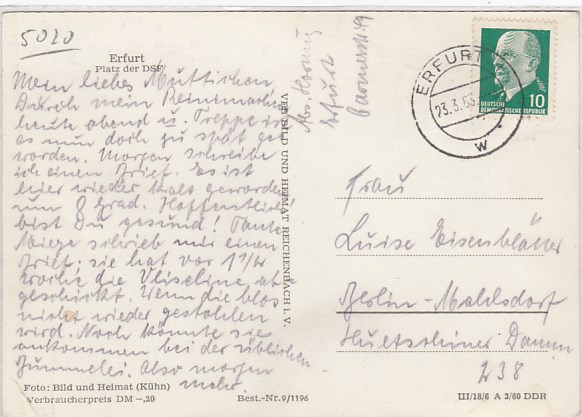 5020
Erfurt
Platz der DSF
Mein liebes Muttichen,
Durch mein Reinemachen
heute abend u. Treppe ist
es nun doch zu spät ge-
worden. Morgen schreibe
ich einen Brief. Es ist
hier wieder kalt geworden
um 0 Grad. Hoffentlich
bist Du gesund! Tante
Miege schrieb mir einen
Brief: sie hat vor 1 1/2
Woche die Vliseline ab-
geschickt. Wenn die blos
nicht wieder gestohlen
wird. Noch könnte sie
ankommen bei der üblichen
Bummelei. Also morgen
mehr.
Foto: Bild und Heimat (Kühn)
Verbraucherpreis DM –,20
Best.-Nr. 9/1196
VEB BILD UND HEIMAT REICHENBACH i. V.
Abs.
Erfurt
49
ERFURT
23.3.63
w
DEUTSCHE
DEMOKRATISCHE REPUBLIK
10
Frau
Luise Eisenblätter
Berlin-Mahlsdorf
Hultschiner Damm
238
III/18/6 A 3/60 DDR